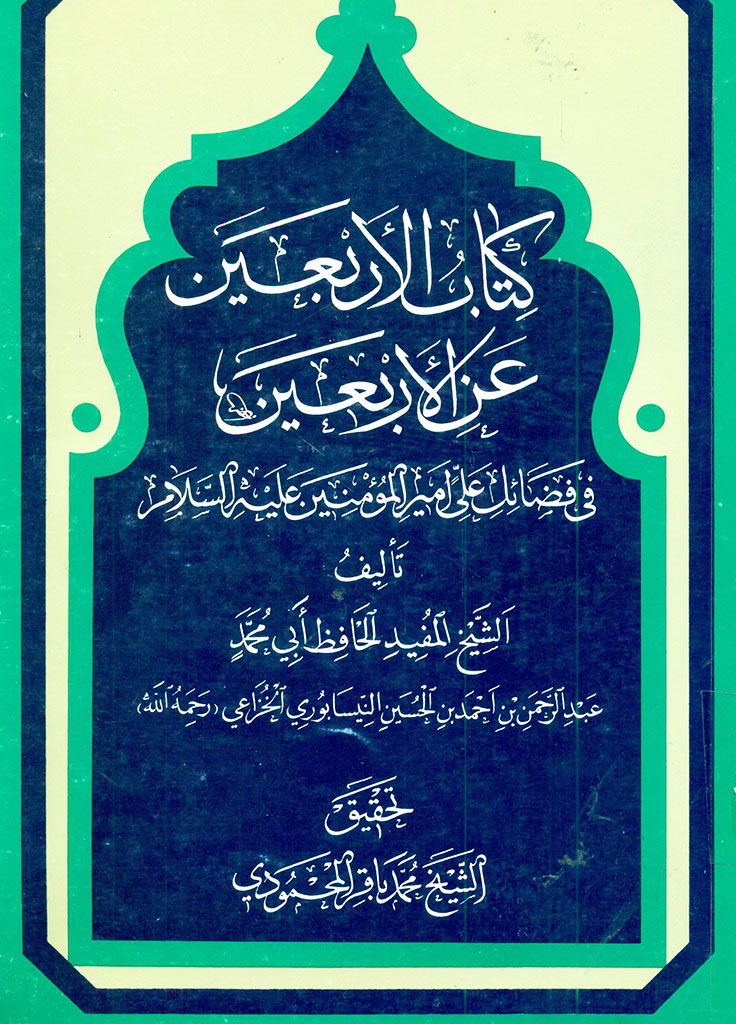 كِتَابُ الأَرْبَعِينَ
عَنِ الأَرْبَعِينَ
فِي فَضَائِلِ عَلِيٍّ أَمِيرِ المُؤْمِنِينَ عَلَيْهِ السَّلَامُ
تَأْلِيفُ
الشَّيْخِ المُفِيدِ الحَافِظِ أَبِي مُحَمَّدٍ
عَبْدِ الرَّحْمَنِ بْنِ أَحْمَدَ بْنِ الحُسَيْنِ النِّيسَابُورِي الخُزَاعِي (رَحِمَهُ اللَّهُ)
تَحْقِيقَ
الشَّيْخِ مُحَمَّد بَاقِر المَحْمُودِي